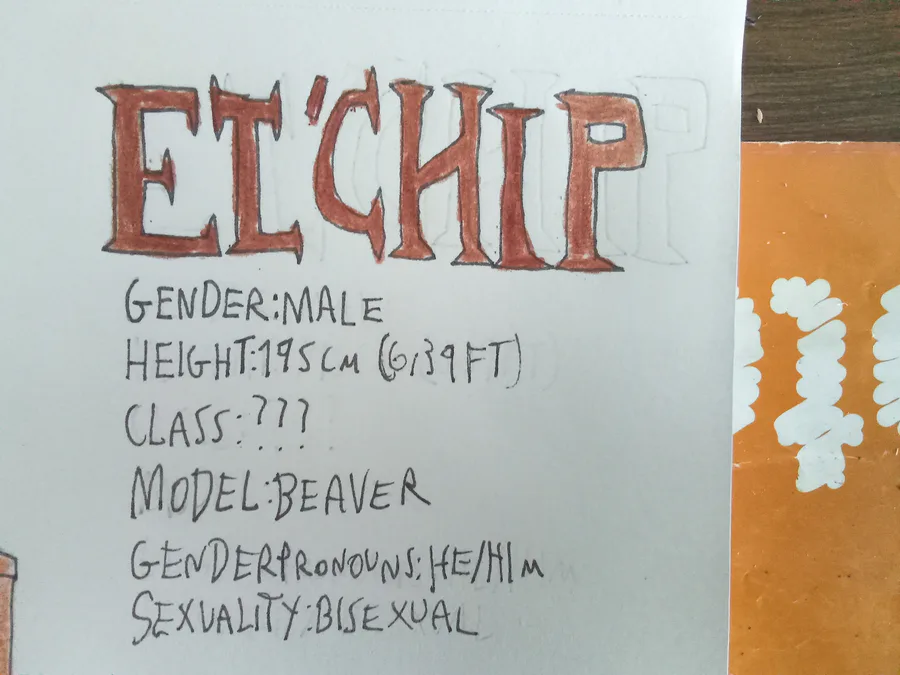 EL'CHIP
GENDER:MALE
HEIGHT:195CM (6,39FT)
CLASS:???
MODEL:BEAVER
GENDERPRONOUNS:HE/HIM
SEXUALITY:BISEXUAL